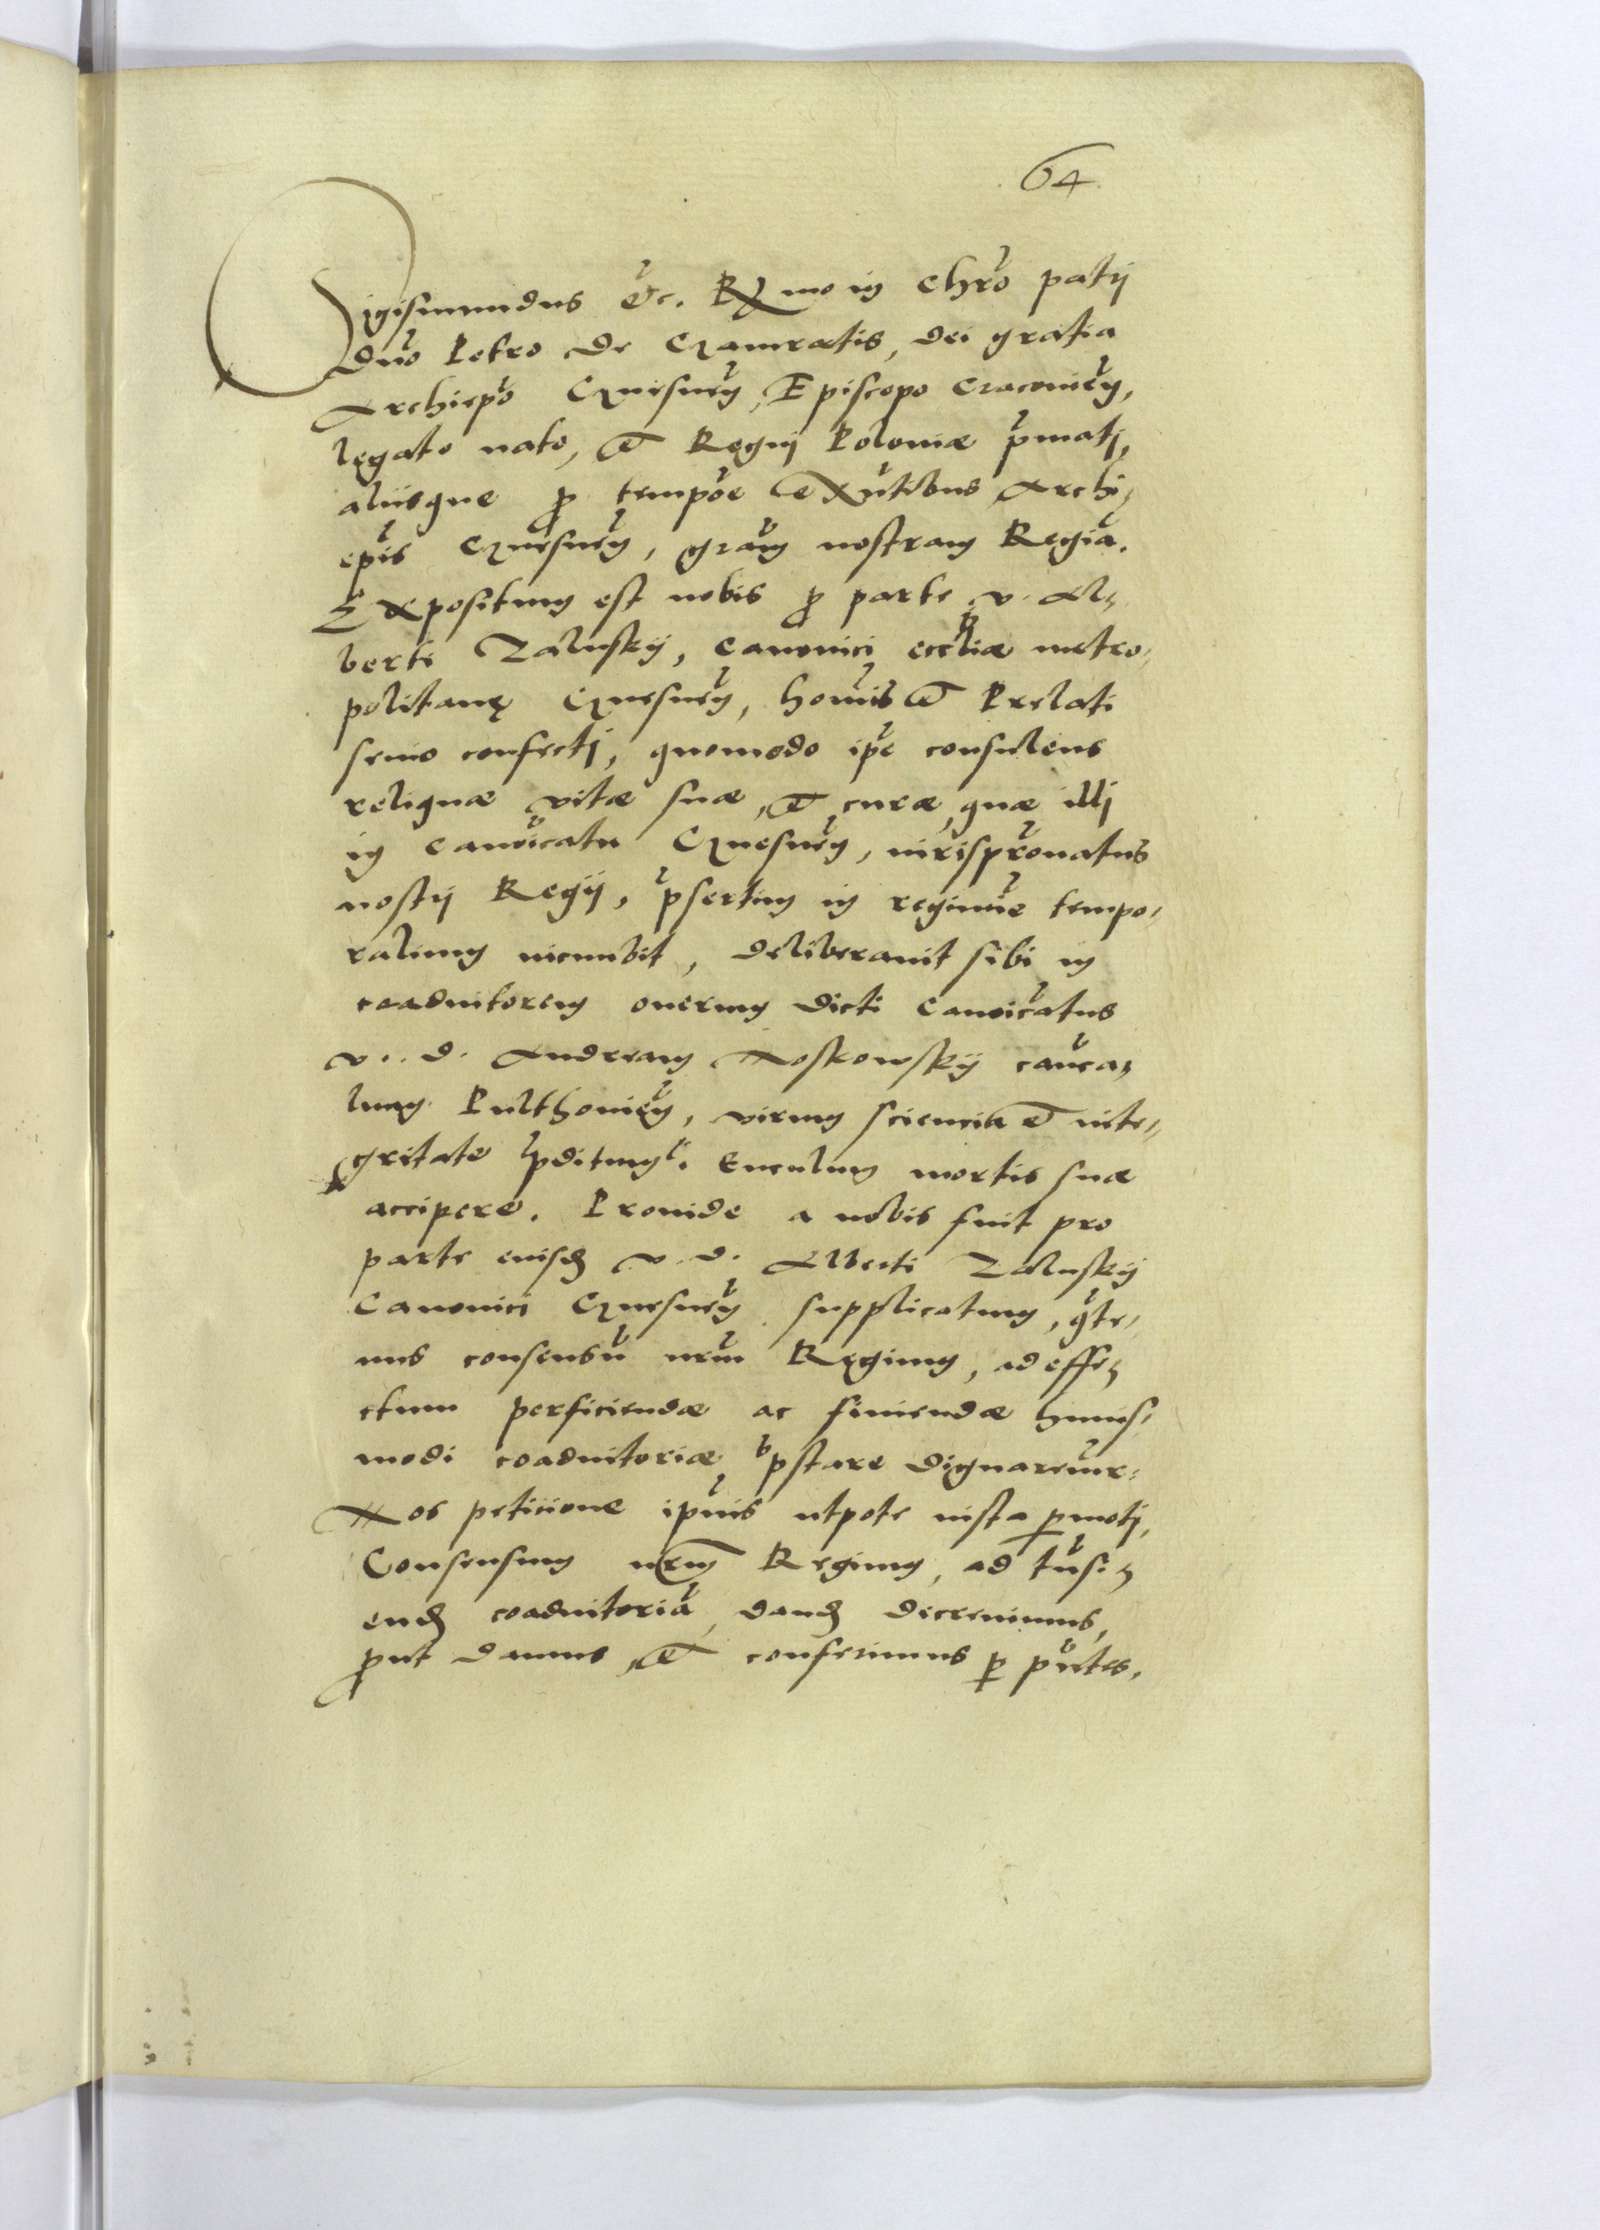 64
Sigismundus etc. Rx̄mo in Chr̄o patrj
dn̄o Petro de Gamratis, dei gratia
Archiepō Gnesn̄en, Episcopo Cracovien̄,
legato nato, et Regnj Poloniæ p̄matj,
aliisque ꝓ tempōe existn̄tibus Archi,
ep̄is Gnesnen̄, grām nostram Regiā.
Expositum est nobis ꝓ parte v. Al,
berti Zalusky, canonici eccl̄iæ metro,
politanę Gnesnen̄, hoīnis et Prelati
senio confectj, quomodo ip̄e consulens
reliquæ vitæ suæ, et curæ, quæ illj
in canōicatu Gnesnen̄, iurispr̄onatus
nostrj Regij, p̄sertim in regimīe tempo,
ralium incumbit, deliberavit sibi in
coadiutorem onerum dicti canōicatus
v. d. Andream Noskowsky cānca,
lium Pulthovien̄, virum sciencia et inte,
gritate p̄ditum. Eventum mortis suæ
accipere. Proinde a nobis fuit pro
parte eiusd̄ v. d. Alberti Zalusky
Canonici Gnesnen̄ supplicatum, q̄te,
nus consensū nr̄um Regium, ad effe,
ctum perficiendæ ac finiendæ huius,
modi coadiutoriæ p̄stare dignaremur.
Nos peticione ip̄ius utpote iusta ꝑmotj,
Consensum nr̄m Regium, ad
end̄ coadiutoriā, dand̄ decrevimus,
ꝓut damus, et conferimus ꝑ pn̄tes.